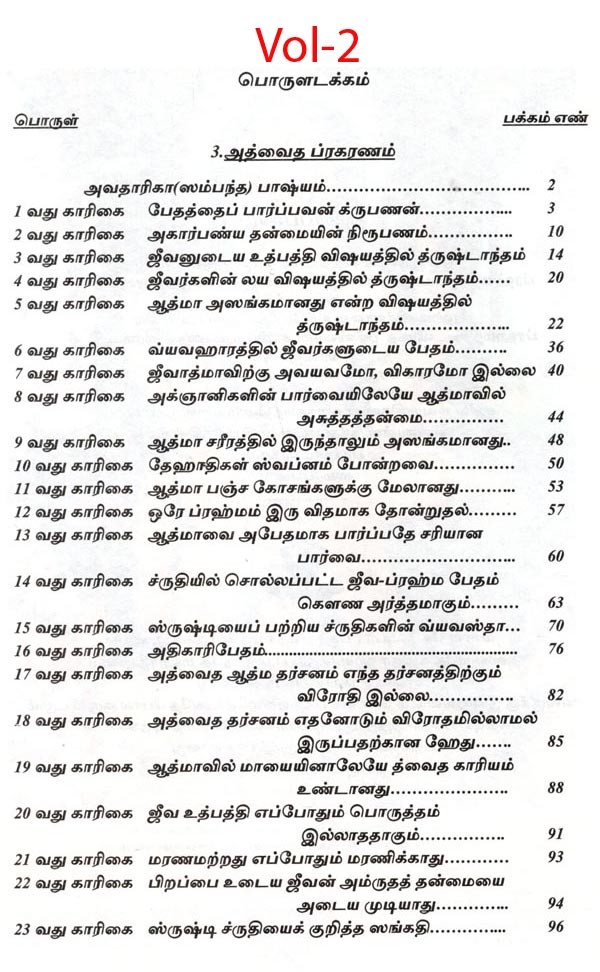 Vol-2
பொருளடக்கம்
பொருள் பக்கம் எண்
3.அத்வைத ப்ரகரணம்
அவதாரிகா(ஸம்பந்த) பாஷ்யம்....................................... 2
1 வது காரிகை பேதத்தைப் பார்ப்பவன் க்ருபணன்.................. 3
2 வது காரிகை அகார்பண்ய தன்மையின் நிரூபணம்................. 10
3 வது காரிகை ஜீவனுடைய உத்பத்தி விஷயத்தில் த்ருஷ்டாந்தம் 14
4 வது காரிகை ஜீவர்களின் லய விஷயத்தில் த்ருஷ்டாந்தம்...... 20
5 வது காரிகை ஆத்மா அஸங்கமானது என்ற விஷயத்தில்
த்ருஷ்டாந்தம்.................... 22
6 வது காரிகை வ்யவஹாரத்தில் ஜீவர்களுடைய பேதம்.......... 36
7 வது காரிகை ஜீவாத்மாவிற்கு அவயவமோ, விகாரமோ இல்லை 40
8 வது காரிகை அக்ஞானிகளின் பார்வையிலேயே ஆத்மாவில்
அசுத்தத்தன்மை................ 44
9 வது காரிகை ஆத்மா சரீரத்தில் இருந்தாலும் அஸங்கமானது.. 48
10 வது காரிகை தேஹாதிகள் ஸ்வப்னம் போன்றவை................ 50
11 வது காரிகை ஆத்மா பஞ்ச கோசங்களுக்கு மேலானது........... 53
12 வது காரிகை ஒரே ப்ரஹ்மம் இரு விதமாக தோன்றுதல்......... 57
13 வது காரிகை ஆத்மாவை அபேதமாக பார்ப்பதே சரியான
பார்வை............................. 60
14 வது காரிகை ச்ருதியில் சொல்லப்பட்ட ஜீவ-ப்ரஹ்ம பேதம்
கௌண அர்த்தமாகும்......... 63
15 வது காரிகை ஸ்ருஷ்டியைப் பற்றிய ச்ருதிகளின் வ்யவஸ்தா... 70
16 வது காரிகை அதிகாரிபேதம்................................................ 76
17 வது காரிகை அத்வைத ஆத்ம தர்சனம் எந்த தர்சனத்திற்கும்
விரோதி இல்லை................ 82
18 வது காரிகை அத்வைத தர்சனம் எதனோடும் விரோதமில்லாமல்
இருப்பதற்கான ஹேது....... 85
19 வது காரிகை ஆத்மாவில் மாயையினாலேயே த்வைத காரியம்
உண்டானது...................... 88
20 வது காரிகை ஜீவ உத்பத்தி எப்போதும் பொருத்தம்
இல்லாததாகும்................ 91
21 வது காரிகை மரணமற்றது எப்போதும் மரணிக்காது............ 93
22 வது காரிகை பிறப்பை உடைய ஜீவன் அம்ருதத் தன்மையை
அடைய முடியாது.............. 94
23 வது காரிகை ஸ்ருஷ்டி ச்ருதியைக் குறித்த ஸங்கதி............... 96